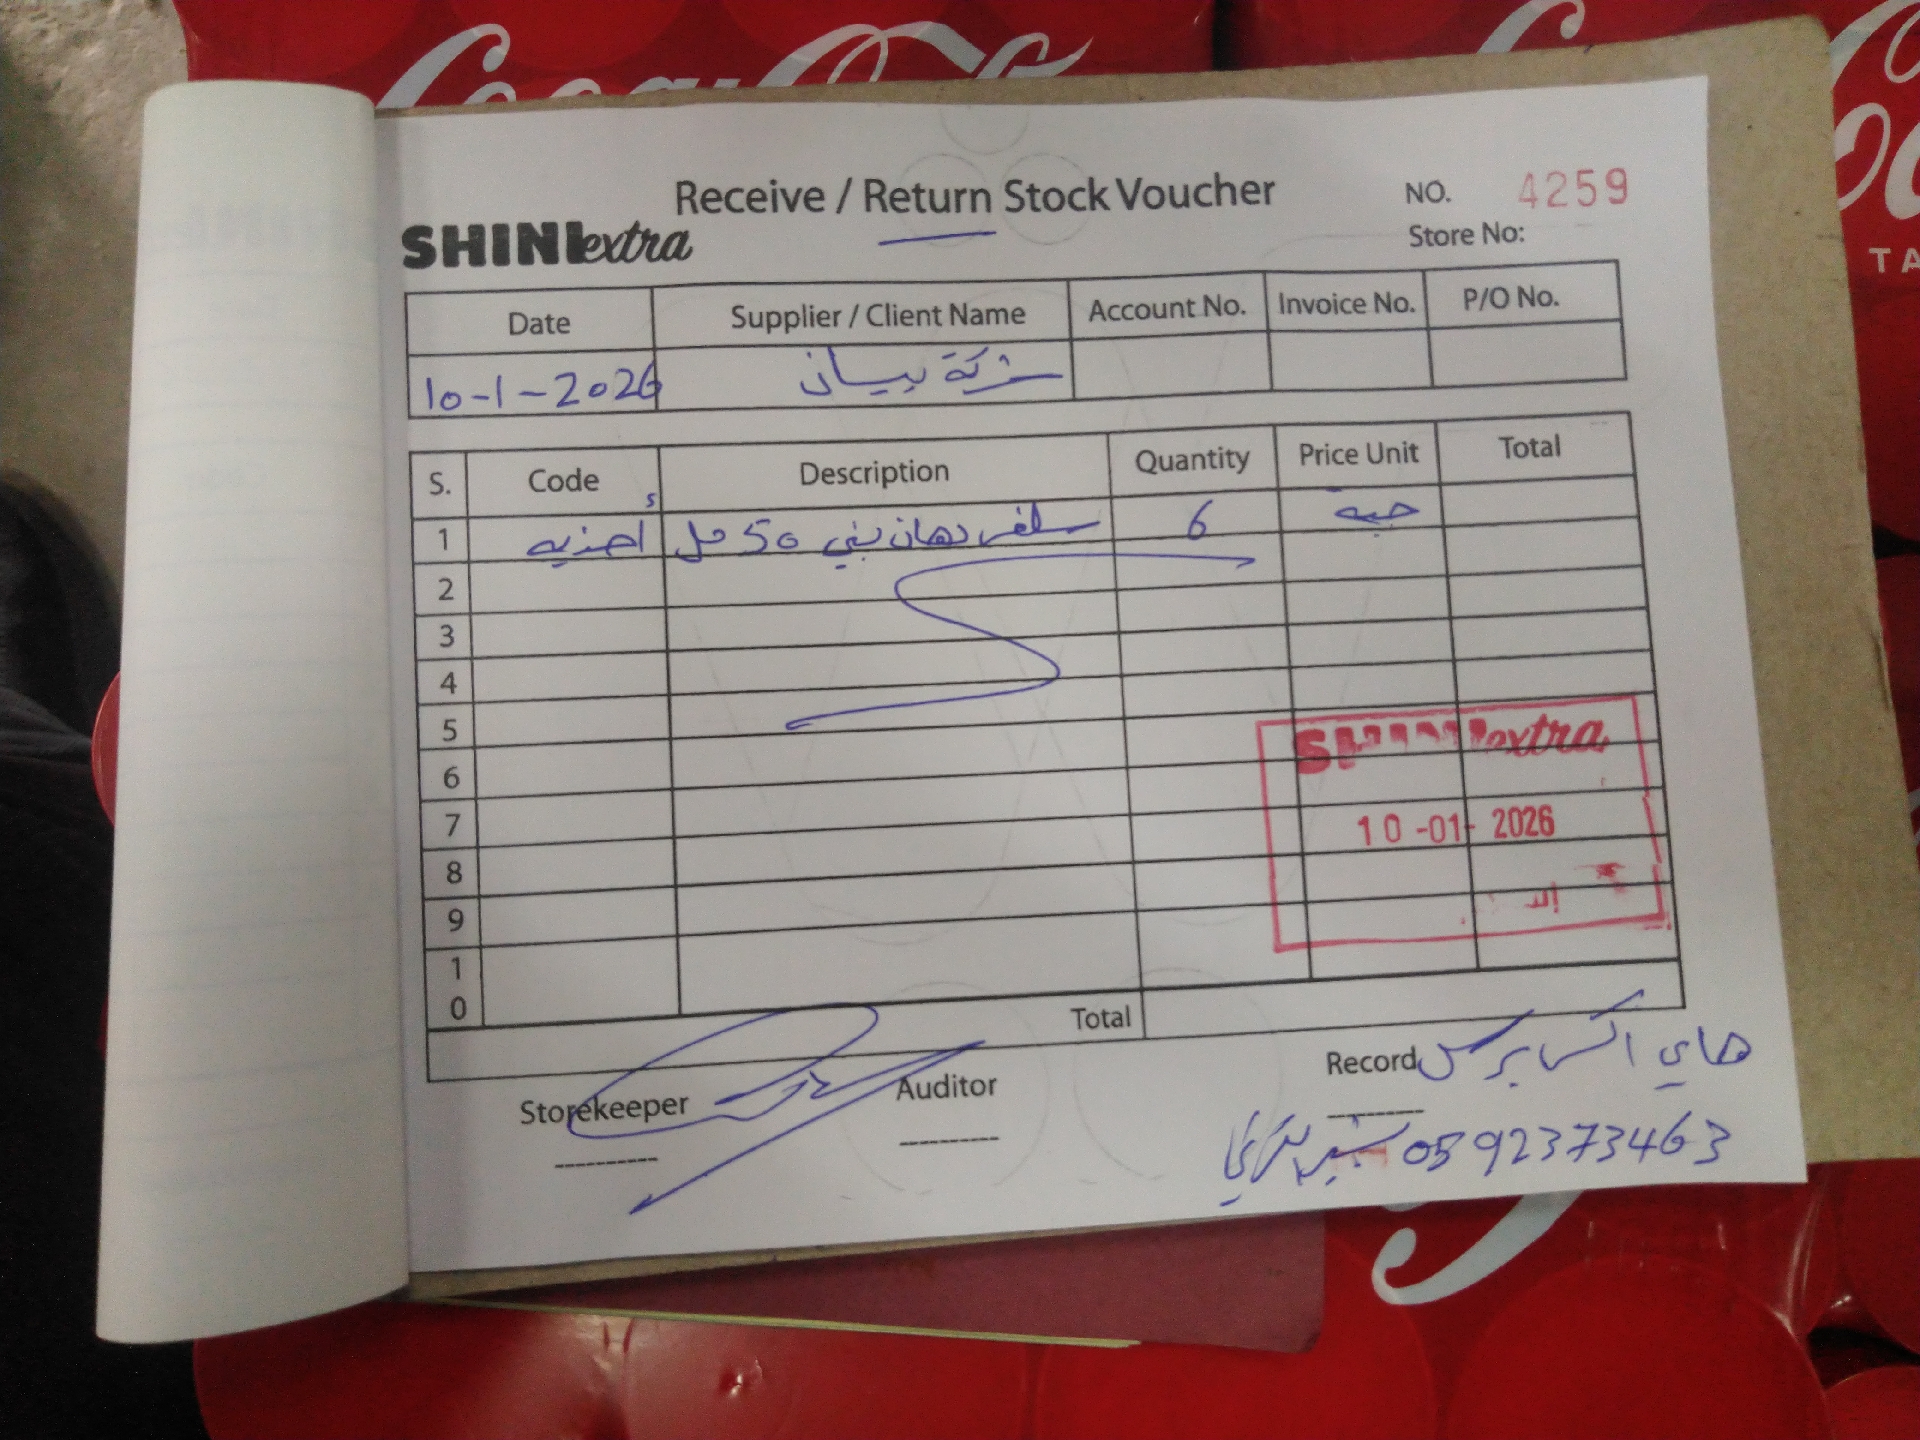 Coca-Cola
Receive / Return Stock Voucher
NO. 4259
SHINIextra
Store No:
Date Supplier / Client Name Account No. Invoice No. P/O No.
10-1-2026 شركة بيسان
S. Code Description Quantity Price Unit Total
1 أحذيه سلفر دهان بني 50 مل 6 حبة
2
3
4
5
6
7
8
9
10
SHINIextra
10-01-2026
Total
Storekeeper Auditor Record
هاي اكسبرس
0592373463
TA